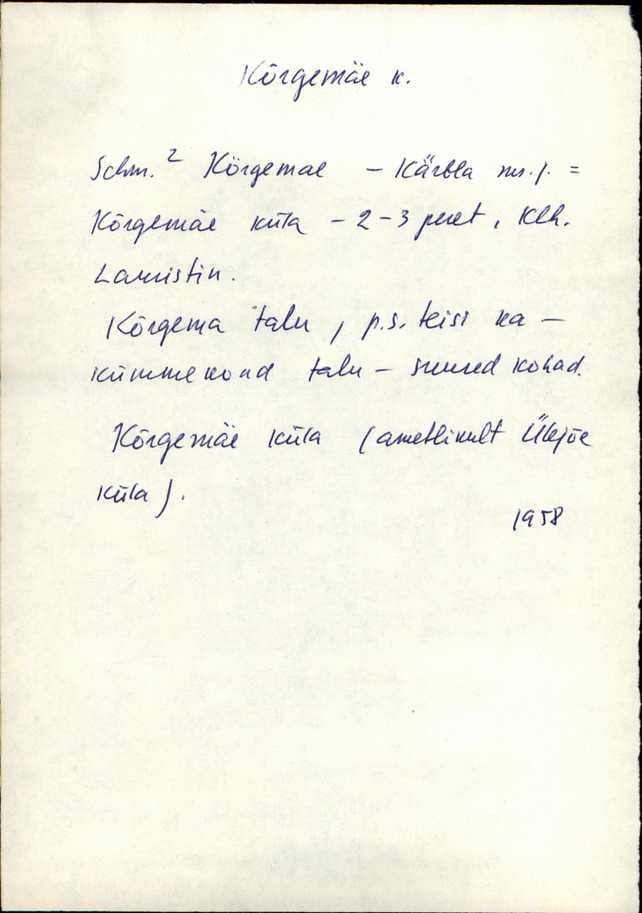 Kõrgemäe k.
Schm.² Kõrgemae – Kärbla ms. j. =
Kõrgemäe küla – 2-3 peret, Klh.
Lauristin.
Kõrgema talu, p.s. teisi ka –
kümmekond talu – suured kohad.
Kõrgemäe küla (ametlikult Ülejõe
küla).
1958